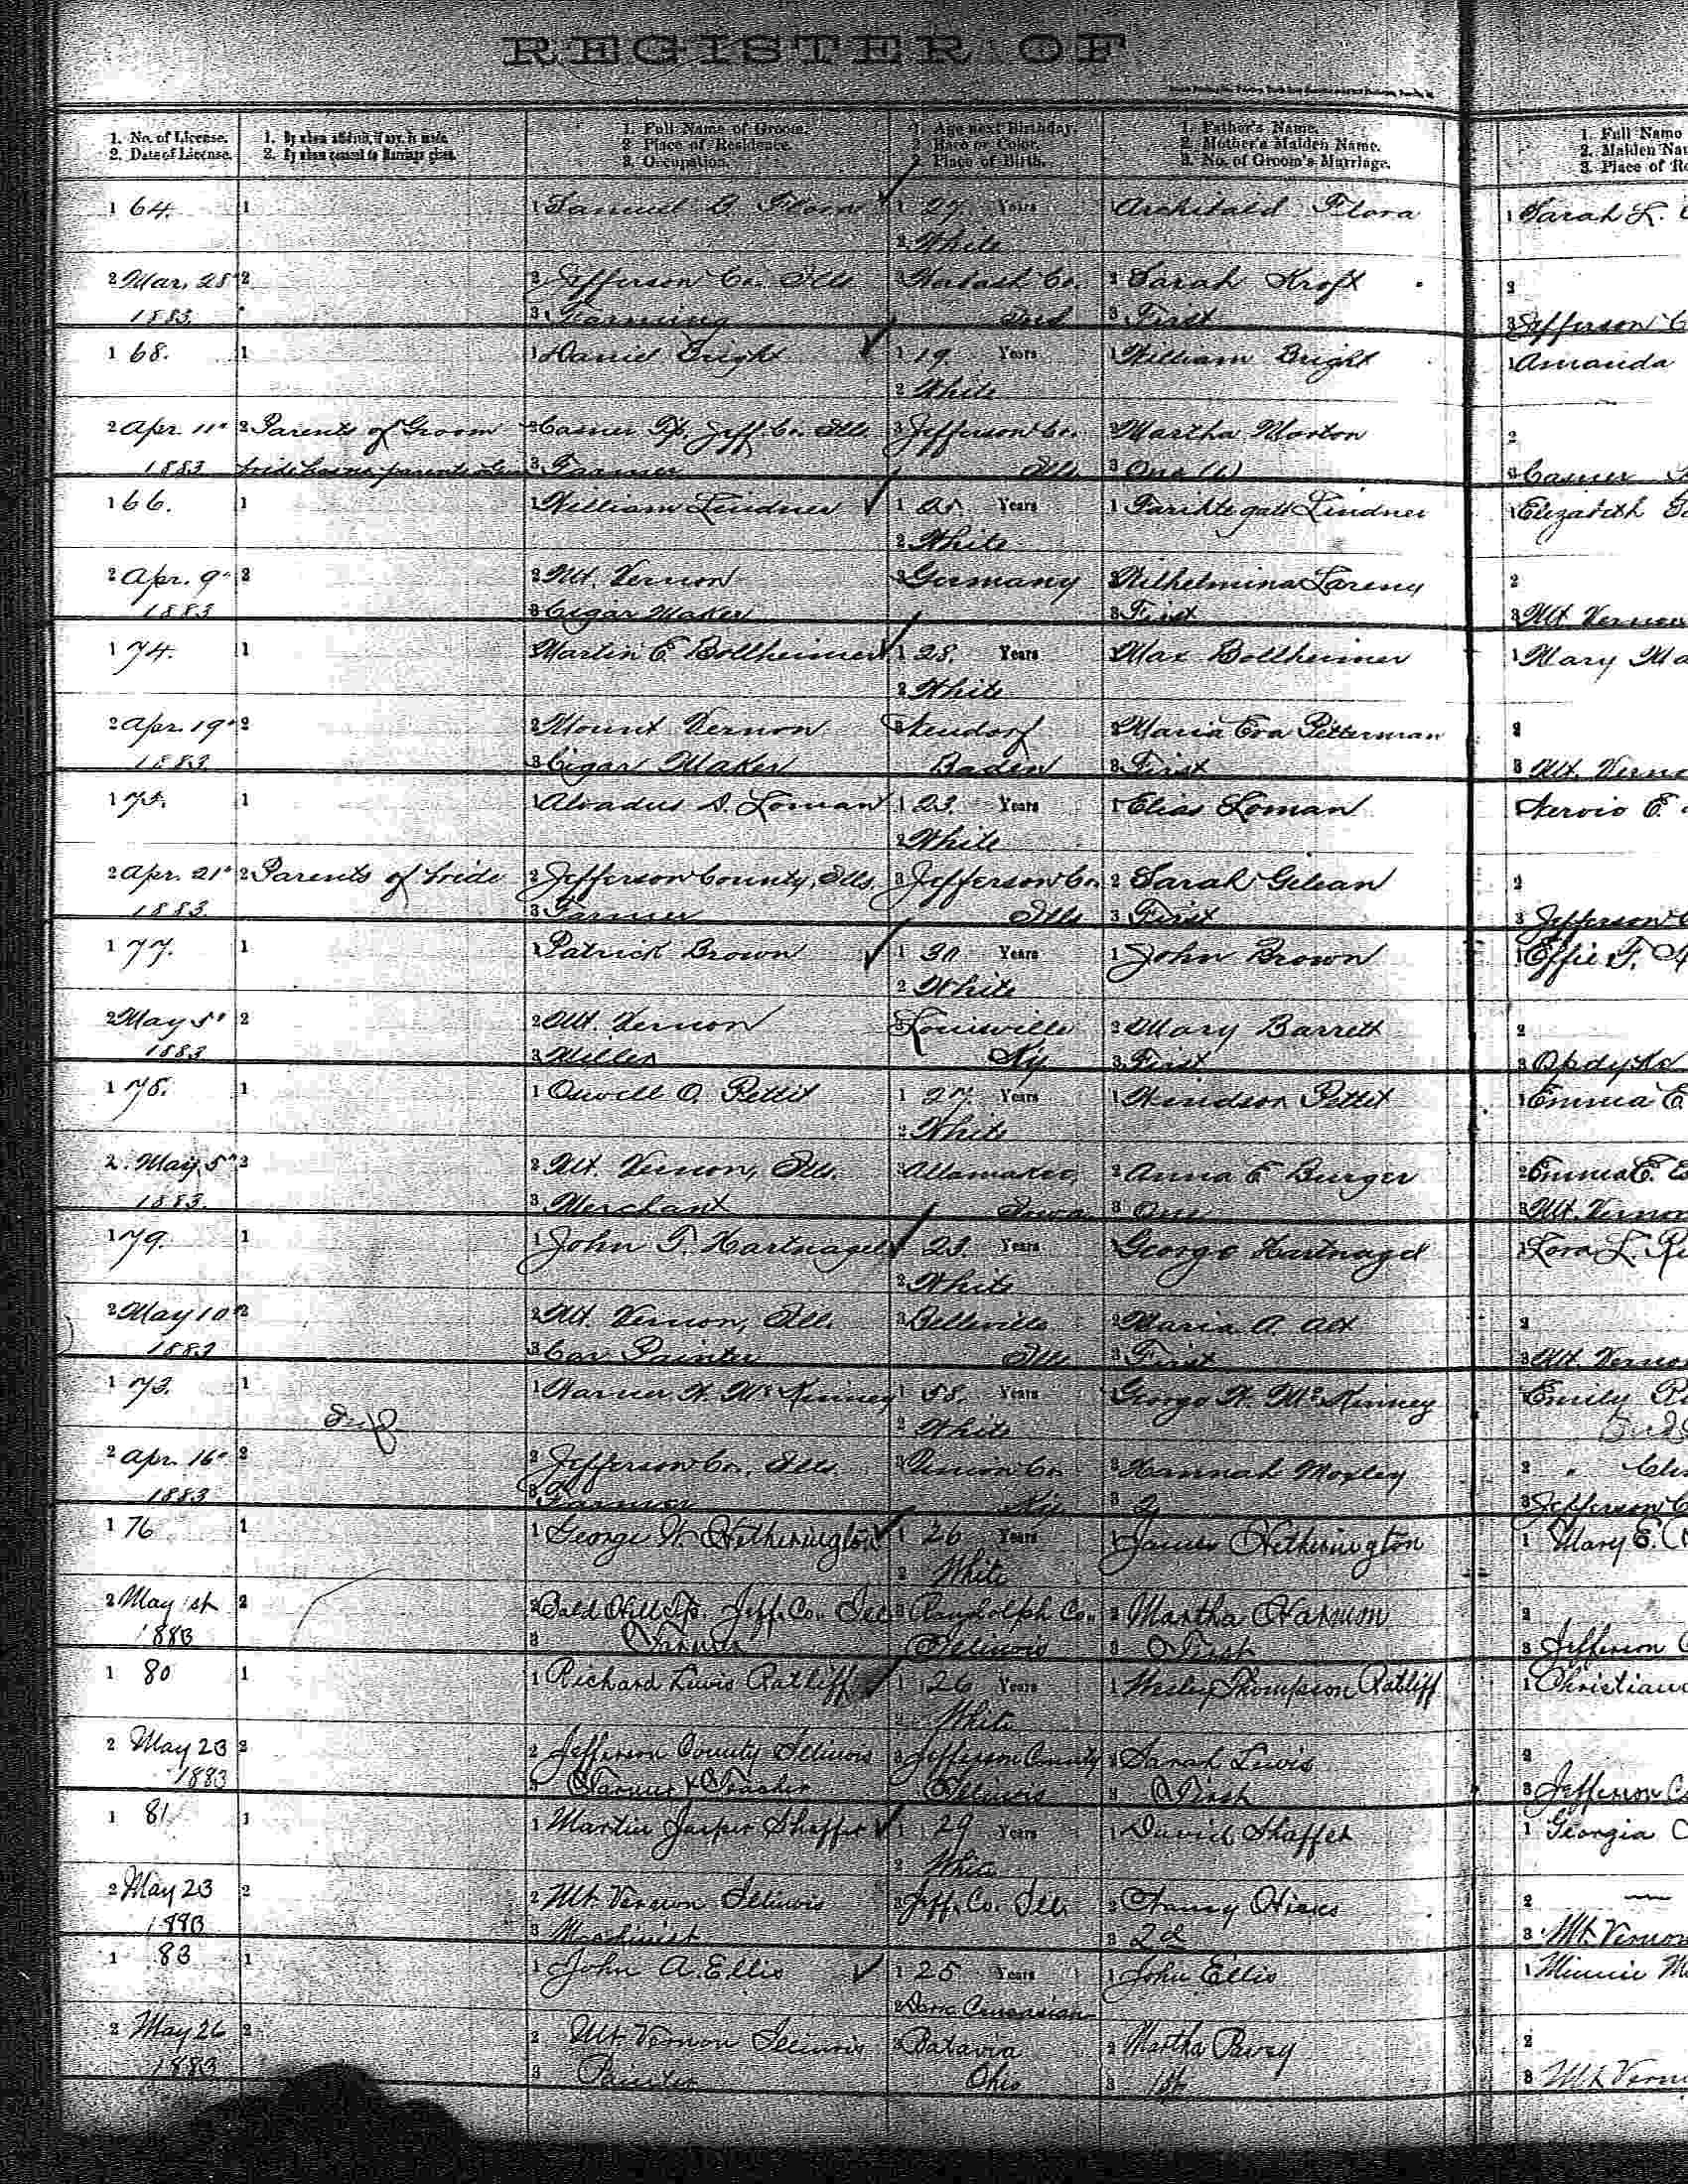 REGISTER OF
1. No. of License.
2. Date of License.
1. By whom affidavit, if any, is made.
2. By whom consent to Marriage given.
1. Full Name of Groom.
2. Place of Residence.
3. Occupation.
1. Age next Birthday.
2. Race or Color.
3. Place of Birth.
1. Father's Name.
2. Mother's Maiden Name.
3. No. of Groom's Marriage.
1. Full Name
2. Maiden Na
3. Place of Re
1 64. 1 1 Samuel B. Flora 1 27 Years 1 Archibald Flora 1 Sarah L.
2 White
2 Mar. 28" 2 2 Jefferson Co. Ills 3 Wabash Co. 2 Sarah Kroft 2
1883. 3 Farming Ind 3 First 3 Jefferson C
1 68. 1 1 Daniel Bright 1 19. Years 1 William Bright 1 Amanda
2 White
2 Apr. 11" 2 Parents of Groom 2 Casner Tp. Jeff. Co. Ills. 3 Jefferson Co. 2 Martha Morton 2
1883 bride having parents 3 Farmer Ills 3 One (1) 3 Casner
1 66. 1 1 William Lindner 1 Years 1 Lindner 1 Elizabeth
2 White
2 Apr. 9" 2 2 Mt. Vernon 3 Germany 2 Wilhelmina 2
1883 3 Cigar Maker 3 First 3 Mt. Vernon
1 74. 1 Martin E. Bollheimer 1 28. Years 1 Max Bollheimer 1 Mary Ma
2 White
2 Apr. 19" 2 2 Mount Vernon 3 Neudorf 2 Maria Eva Pitterman 2
1883 3 Cigar Maker Baden 3 First 3 Mt. Verno
1 75. 1 1 Alvadus D. Loman 1 23. Years 1 Elias Loman E.
2 White
2 Apr. 21" 2 Parents of bride 2 Jefferson County, Ills. 3 Jefferson Co. 2 Sarah Gilean 2
1883 3 Farmer Ills 3 First 3 Jefferson C
1 77. 1 1 Patrick Brown 1 30 Years 1 John Brown 1 Effie F.
2 White
2 May 5" 2 2 Mt. Vernon 3 Louisville 2 Mary Barrett 2
1883 3 Miller Ky 3 First 3 Opdyke
1 78. 1 1 Orvell O. Pettit 1 27. Years 1 Hindson Pettit 1 Emma E
2 White
2. May 5" 2 2 Mt. Vernon, Ills. 3 Allamakee, 2 Anna E Burger 2 Emma E. Es
1883. 3 Merchant Iowa 3 One 3 Mt. Vernon
1 79. 1 1 John T. Hartnagel 1 23. Years 1 George Hartnagel 1 Lora L.
2 White
2 May 10" 2 2 Mt. Vernon, Ills. 3 Belleville 2 Maria A. Alt 2
1883 3 Car Painter Ills 3 First 3 Mt. Verno
1 73. 1 1 Warner W. McKinney 1 58. Years 1 George W. McKinney 1 Emily
2 White
2 Apr. 16" 2 2 Jefferson Co., Ills. 3 Union Co. 2 Hannah Moxley 2
1883 3 Farmer Ky. 3 2 3 Jefferson C
1 76 1 1 George W. Hetherington 1 26 Years 1 James Hetherington 1 Mary E.
2 White
2 May 1st 2 2 Bald Hill Tp. Jeff. Co. Ill 3 Randolph Co. 2 Martha Hanum 2
1883 3 Farmer Illinois 3 First 3 Jefferson C
1 80 1 1 Richard Lewis Ratliff 1 26 Years 1 Wesley Thompson Ratliff 1 Christiana
2 White
2 May 23 2 2 Jefferson County Illinois 3 Jefferson County 2 Sarah Lewis 2
1883 3 Farmer & Teacher Illinois 3 First 3 Jefferson C
1 81 1 1 Martin Jasper Shaffer 1 29 Years 1 David Shaffer 1 Georgia
2 White
2 May 23 2 2 Mt. Vernon Illinois 3 Jeff. Co. Ills. 2 2
1883 3 Machinist 3 2d 3 Mt. Vernon
1 83 1 1 John A. Ellis 1 25 Years 1 John Ellis 1 Minnie M
2 Dark Caucasian
2 May 26 2 2 Mt. Vernon Illinois 3 Batavia 2 Martha 2
1883 3 Painter Ohio 3 1st 3 Mt. Verno